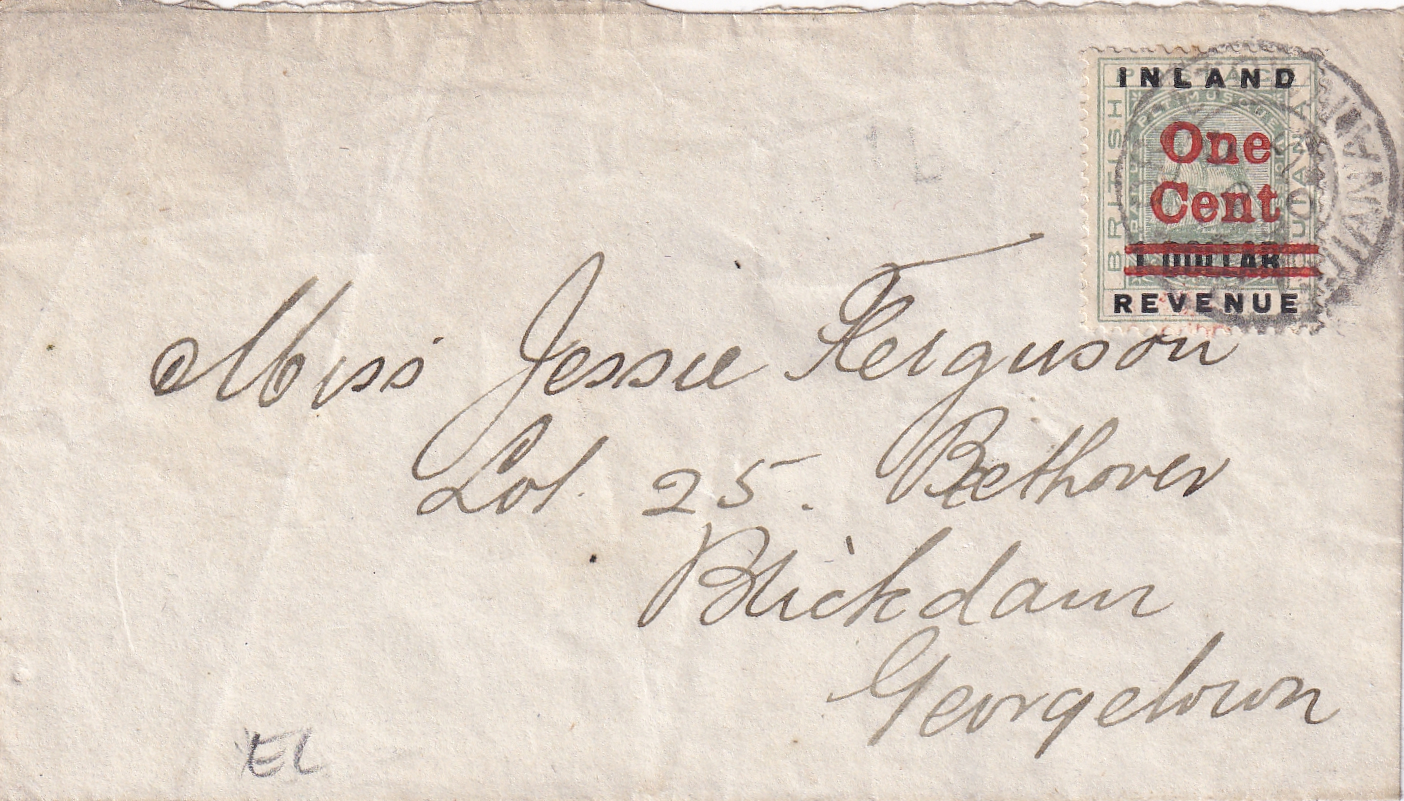 INLAND
One
Cent
1 DOLLAR
REVENUE
BRITISH
Miss Jessie Ferguson
Lot. 25. Bethover
Brickdam
Georgetown
EL